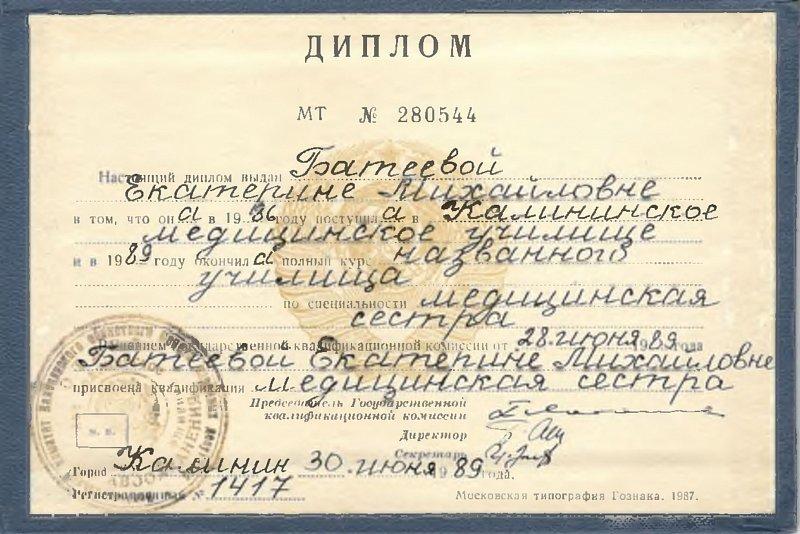 ДИПЛОМ
МТ № 280544
Настоящий диплом выдан Батеевой
Екатерине Михайловне
в том, что она в 1986 году поступила в Калининское
медицинское училище
и в 1989 году окончила полный курс названного
училища
по специальности медицинская
сестра
Решением Государственной квалификационной комиссии от 28 июня 1989 года
Батеевой Екатерине Михайловне
присвоена квалификация медицинская сестра
Председатель Государственной
квалификационной комиссии
Директор
Секретарь
Город Калинин 30 июня 1989 года.
Регистрационный № 1417
Московская типография Гознака. 1987.
м. п.